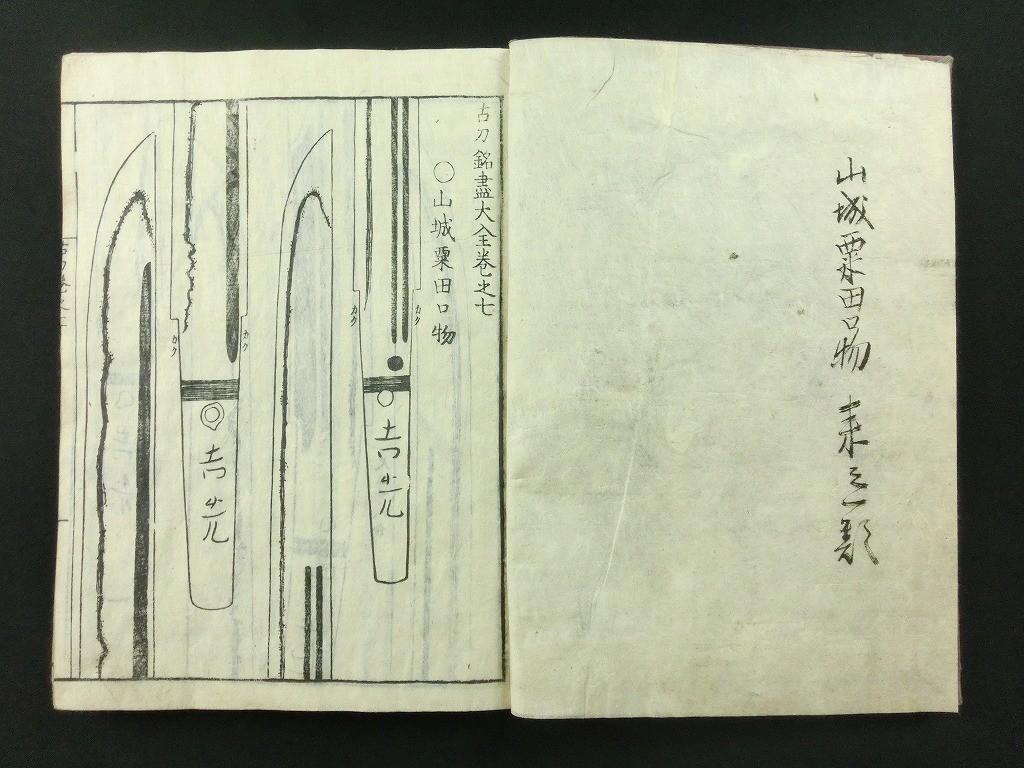 山城粟田口物 来之類
古刀銘盡大全巻之七
○山城粟田口物
カク
カク
吉光
カク
カク
吉光